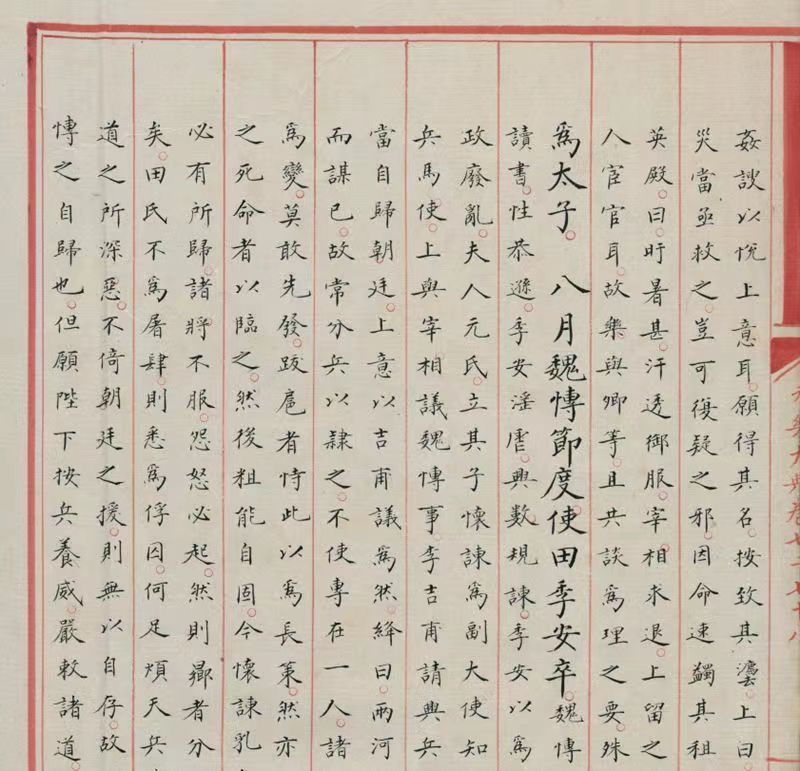 姦諛以悅上意耳。願得其名。按致其灋。上曰
災當亟救之。豈可復疑之邪。因命速蠲其租
英殿。日旰暑甚。汗透御服。宰相求退。上留之
人宦官耳。故樂與卿等。且共談爲理之要。殊
爲太子。八月魏愽節度使田季安卒。魏愽
讀書。性恭遜。季安淫虐。興數規諫。季安以爲
政廢亂。夫人元氏。立其子懷諫爲副大使知
兵馬使。上與宰相議魏愽事。李吉甫請興兵
當自歸朝廷。上意以吉甫議爲然。絳曰。兩河
而謀已。故常分兵以隸之。不使專在一人。諸
爲變。莫敢先發。跋扈者恃此以爲長策。然亦
之死命者以臨之。然後粗能自固。今懷諫乳
必有所歸。諸將不服。怨怒必起。然則鄉者分
矣。田氏不爲屠肆。則悉爲俘囚。何足煩天兵
道之所深惡。不倚朝廷之援。則無以自存。故
愽之自歸也。但願陛下按兵養威。嚴敕諸道。